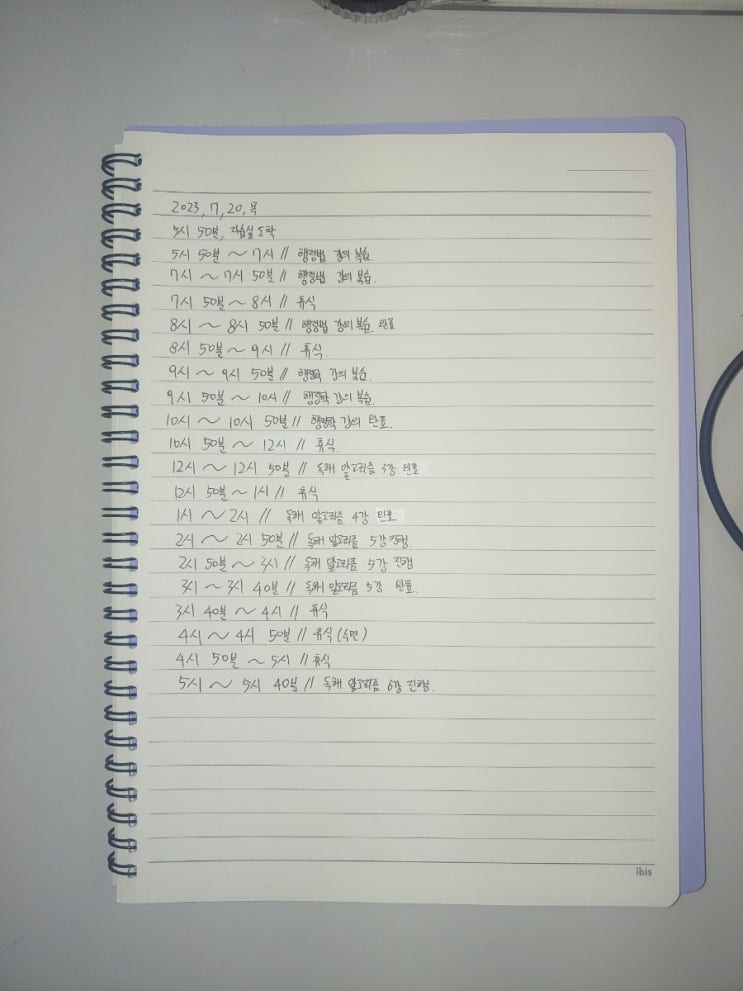 2023, 7, 20, 목
5시 50분, 자습실 도착
5시 50분 ~ 7시 // 행정법 강의 복습.
7시 ~ 7시 50분 // 행정법 강의 복습.
7시 50분 ~ 8시 // 휴식
8시 ~ 8시 50분 // 행정법 강의 복습 완료
8시 50분 ~ 9시 // 휴식.
9시 ~ 9시 50분 // 행정학 강의 복습.
9시 50분 ~ 10시 // 행정학 강의 복습.
10시 ~ 10시 50분 // 행정학 강의 완료.
10시 50분 ~ 12시 // 휴식.
12시 ~ 12시 50분 // 독해 알고리즘 3강 완료
12시 50분 ~ 1시 // 휴식
1시 ~ 2시 // 독해 알고리즘 4강 완료
2시 ~ 2시 50분 // 독해 알고리즘 5강 진행.
2시 50분 ~ 3시 // 독해 알고리즘 5강 진행
3시 ~ 3시 40분 // 독해 알고리즘 5강 완료.
3시 40분 ~ 4시 // 휴식
4시 ~ 4시 50분 // 휴식 (수면)
4시 50분 ~ 5시 // 휴식
5시 ~ 5시 40분 // 독해 알고리즘 6강 진행.
ibis